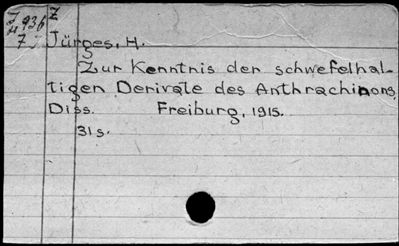 Z
936
7
Jürges, H.
Zur Kenntnis der schwefelhal-
tigen Derivate des Anthrachinons.
Diss. Freiburg, 1915.
31 s.